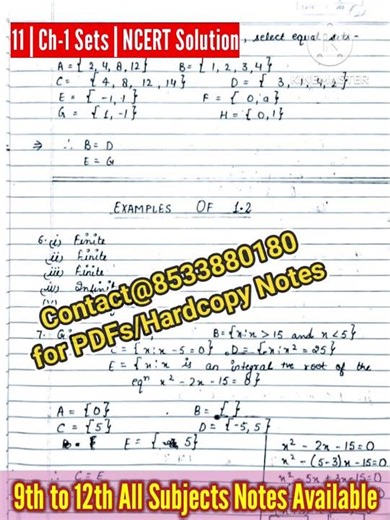 11 | Ch-1 Sets | NCERT Solution , select equal sets -
KINEMASTER
A = { 2, 4, 8, 12 } B = { 1, 2, 3, 4 }
C = { 4, 8, 12, 14 } D = { 3, 1, 4, 2 }
E = { -1, 1 } F = { 0, a }
G = { 1, -1 } H = { 0, 1 }
⇒ ∴ B = D
E = G
EXAMPLES OF 1.2
6. (i) Finite
(ii) Finite
(iii) Finite
(iv) Infinite
Contact@8533880180
for PDFs/Hardcopy Notes
7. B = { x : x > 15 and x < 5 }
C = { x : x - 5 = 0 } , D = { x : x² = 25 }
E = { x : x is an integral +ve root of the
eqⁿ x² - 2x - 15 = 0 }
A = { 0 } B = { }
C = { 5 } D = { -5, 5 }
E = { 5 }
x² - 2x - 15 = 0
x² - (5-3)x - 15 = 0
x² - 5x + 3x - 15 = 0
∴ C = E
9th to 12th All Subjects Notes Available